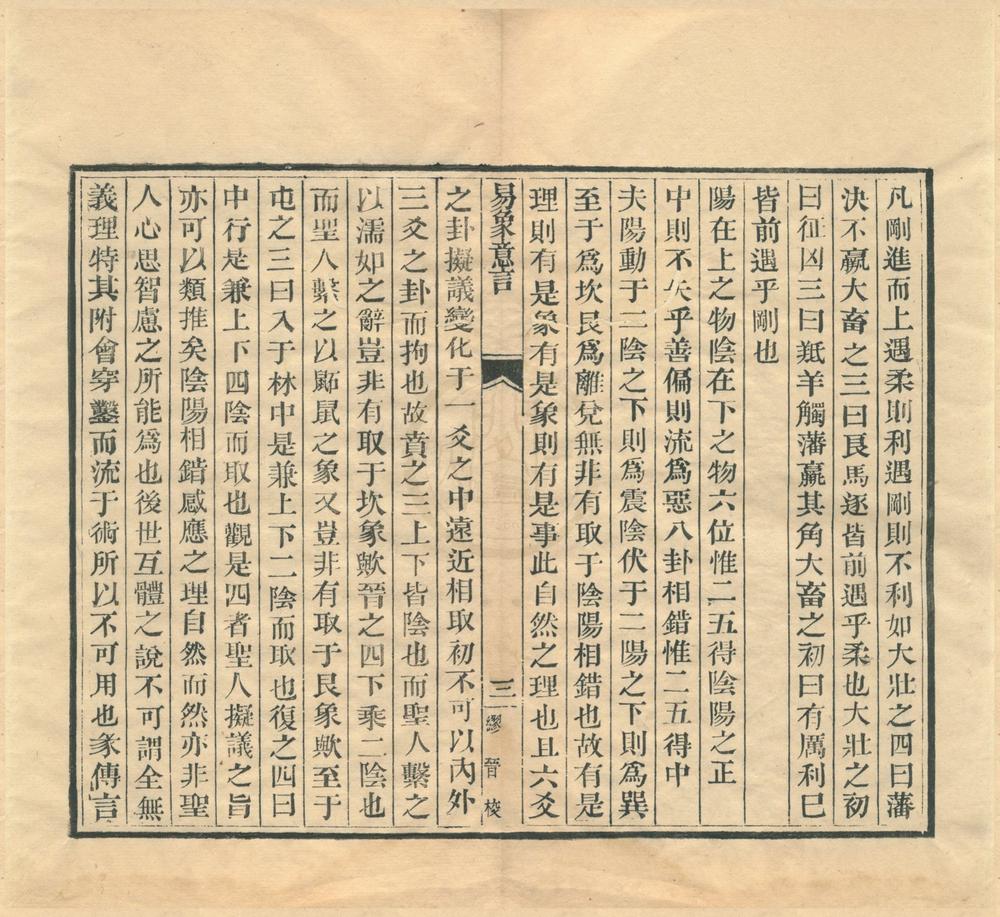 凡剛進而上遇柔則利遇剛則不利如大壯之四曰藩
決不羸大畜之三曰良馬逐皆前遇乎柔也大壯之初
曰征凶三曰羝羊觸藩羸其角大畜之初曰有厲利巳
皆前遇乎剛也
陽在上之物陰在下之物六位惟二五得陰陽之正
中則不失乎善偏則流為惡八卦相錯惟二五得中
夫陽動于二陰之下則為震陰伏于二陽之下則為巽
至于為坎艮為離兌無非有取于陰陽相錯也故有是
理則有是象有是象則有是事此自然之理也且六爻
易象意言
三
繆晉校
之卦擬議變化于一爻之中遠近相取初不可以內外
三爻之卦而拘也故賁之三上下皆陰也而聖人繫之
以濡如之辭豈非有取于坎象歟晉之四下乘二陰也
而聖人繫之以鼫鼠之象又豈非有取于艮象歟至于
屯之三曰入于林中是兼上下二陰而取也復之四曰
中行是兼上下四陰而取也觀是四者聖人擬議之旨
亦可以類推矣陰陽相錯感應之理自然而然亦非聖
人心思智慮之所能為也後世互體之說不可謂全無
義理特其附會穿鑿而流于術所以不可用也彖傳言